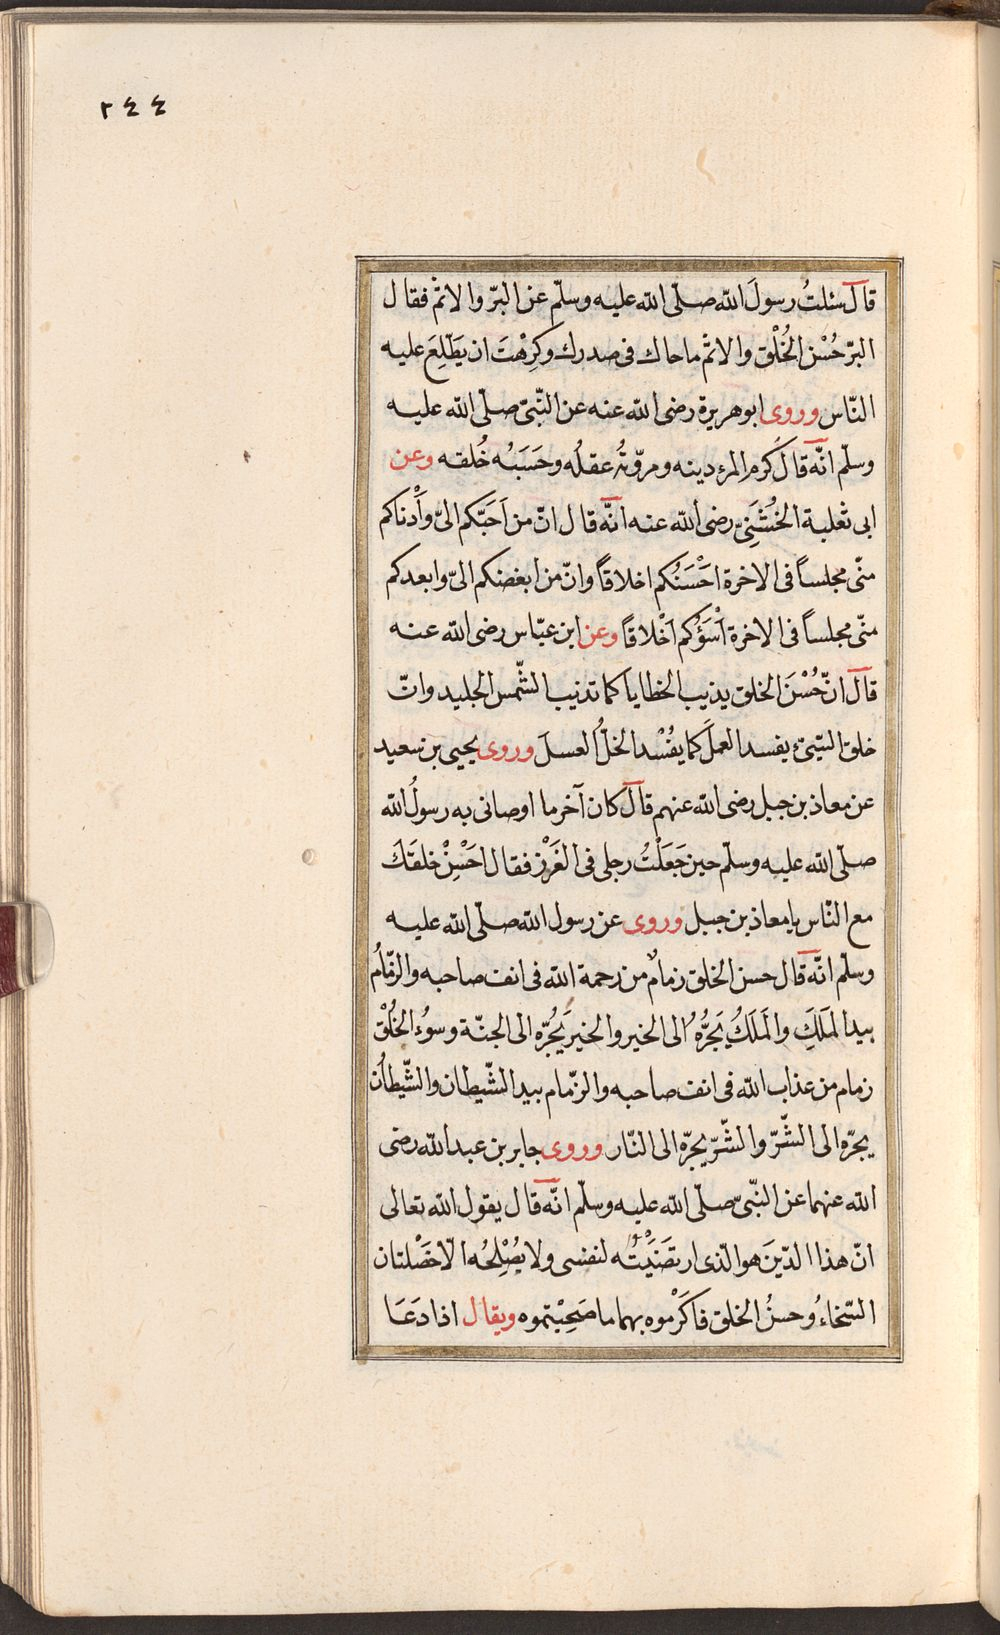 ٢٤٤
قال سئلتُ رسولَ الله صلّى الله عليه وسلّم عن البرّ والاثم فقال
البرّ حُسْن الخُلْق والاثم ما حاك فى صدرك وكرِهْتَ ان يَطَّلِعَ عليه
النّاس وروى ابو هريرة رضى الله عنه عن النّبىّ صلّى الله عليه
وسلّم انّه قال كَرم المرء دينه ومروّتُه عقلُه وحَسَبُه خُلقه وعن
ابى ثعلبة الخُشَنِىّ رضى الله عنه انّه قال انّ من اَحَبّكم الىّ وأَدْناكم
منّى مجلساً فى الاخرة احْسَنُكم اخلاقاً وانّ من ابغضكم الىّ وابعدكم
منّى مجلساً فى الاخرة اَسْؤُكم اَخْلاقًا وعن ابن عبّاس رضى الله عنه
قال انّ حُسْنَ الخلق يذيب الخطايا كما تذيب الشّمس الجليد وانّ
خلق السّيّئ يفسد العملَ كما يفْسُد الخلُّ العسلَ وروى يحيى بن سعيد
عن معاذ بن جبل رضى الله عنهم قال كان آخر ما اوصانى به رسولُ الله
صلّى الله عليه وسلّم حين جَعَلْتُ رجلى فى الغَرْز فقال احْسِنْ خلقَك
مع النّاس يا معاذ بن جبل وروى عن رسول الله صلّى الله عليه
وسلّم انّه قال حسن الخلق زمامٌ من رحمة الله فى انف صاحبه والزّمامُ
بيد المَلَكِ والمَلَكُ يَجُرُّهُ الى الخير والخير يَجُرّه الى الجنّة وسوُء الخُلْق
زمام من عذاب الله فى انف صاحبه والزّمام بيد الشّيطان والشّيطانُ
يجرّه الى الشّرّ والشّرّ يجرّه الى النّار وروى جابر بن عبد الله رضى
الله عنهما عن النّبىّ صلّى الله عليه وسلّم انّه قال يقول الله تعالى
انّ هذا الدّينَ هو الّذى ارتضَيْتُه لنفسى ولا يصْلِحُه الّا خَصْلتان
السّخاءُ وحسنُ الخلق فاكَرْموه بهما ما صَحِبْتموه ويقال اذا دَعَا